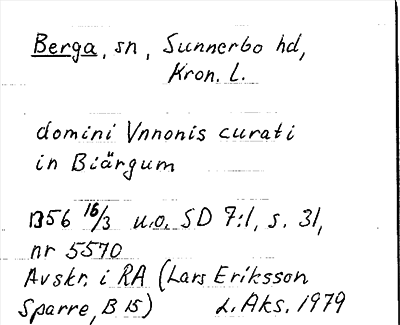 Berga, sn, Sunnerbo hd,
Kron. L.
domini Vnnonis curati
in Biärgum
1356 16/3 u.o. SD 7:1, s. 31,
nr 5570
Avskr. i RA (Lars Eriksson
Sparre, B 15) L. Aks. 1979